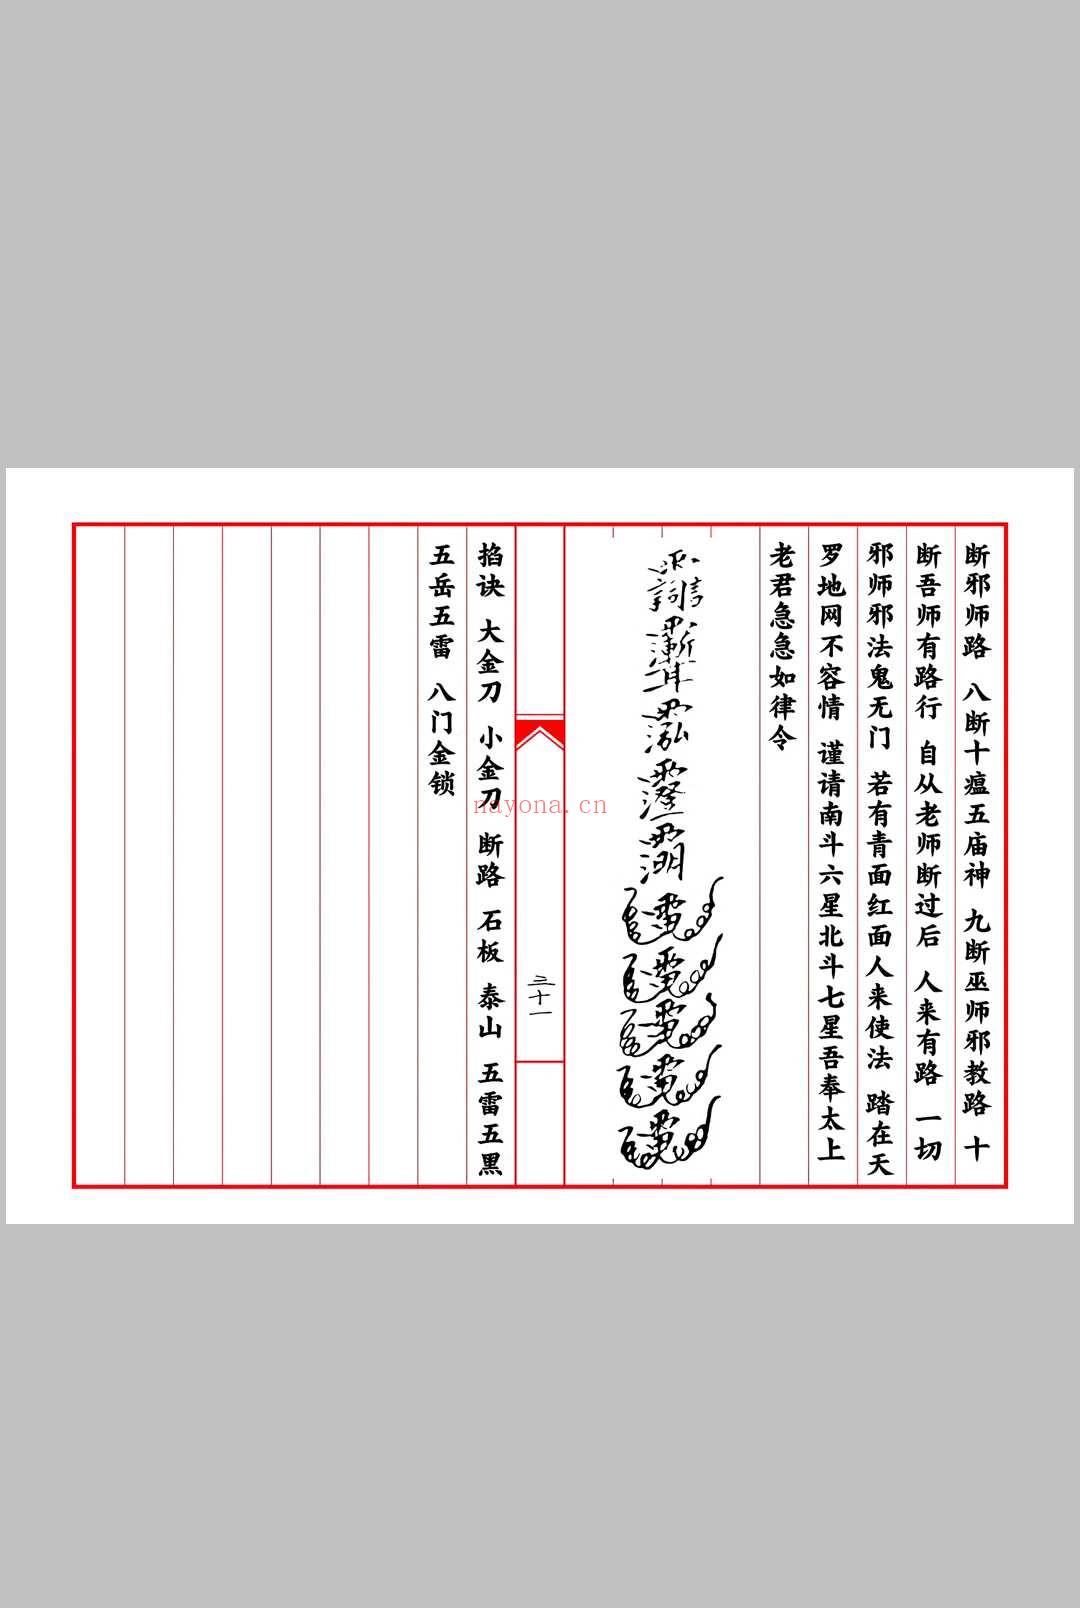 断邪师路 八断十瘟五庙神 九断巫师邪教路 十
断吾师有路行 自从老师断过后 人来有路 一切
邪师邪法鬼无门 若有青面红面人来使法 踏在天
罗地网不容情 谨请南斗六星北斗七星吾奉太上
老君急急如律令
三十一
掐诀 大金刀 小金刀 断路 石板 泰山 五雷五黑
五岳五雷 八门金锁
nayona.cn